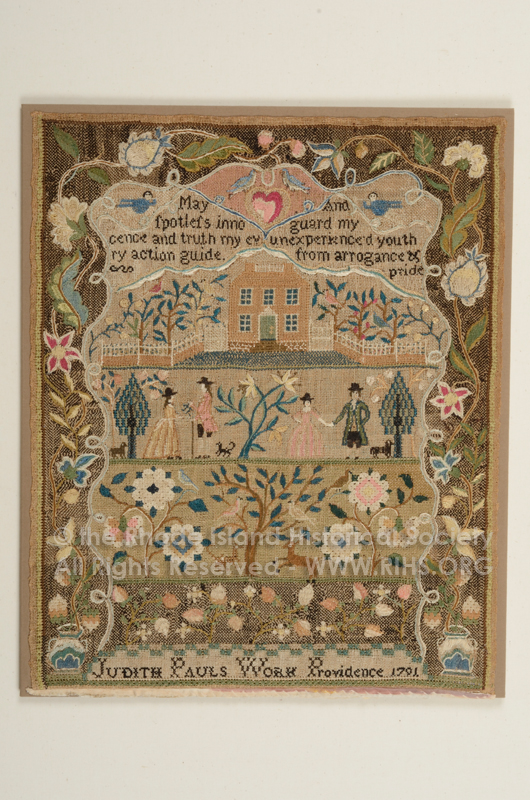 May
ſpotleſs inno
cence and truth my ev
ry action guide.
And
guard my
unexperienc'd youth
from arrogance &
pride
© the Rhode Island Historical Society
All Rights Reserved - WWW.RIHS.ORG
JUDITH PAULS WORK Providence 1791